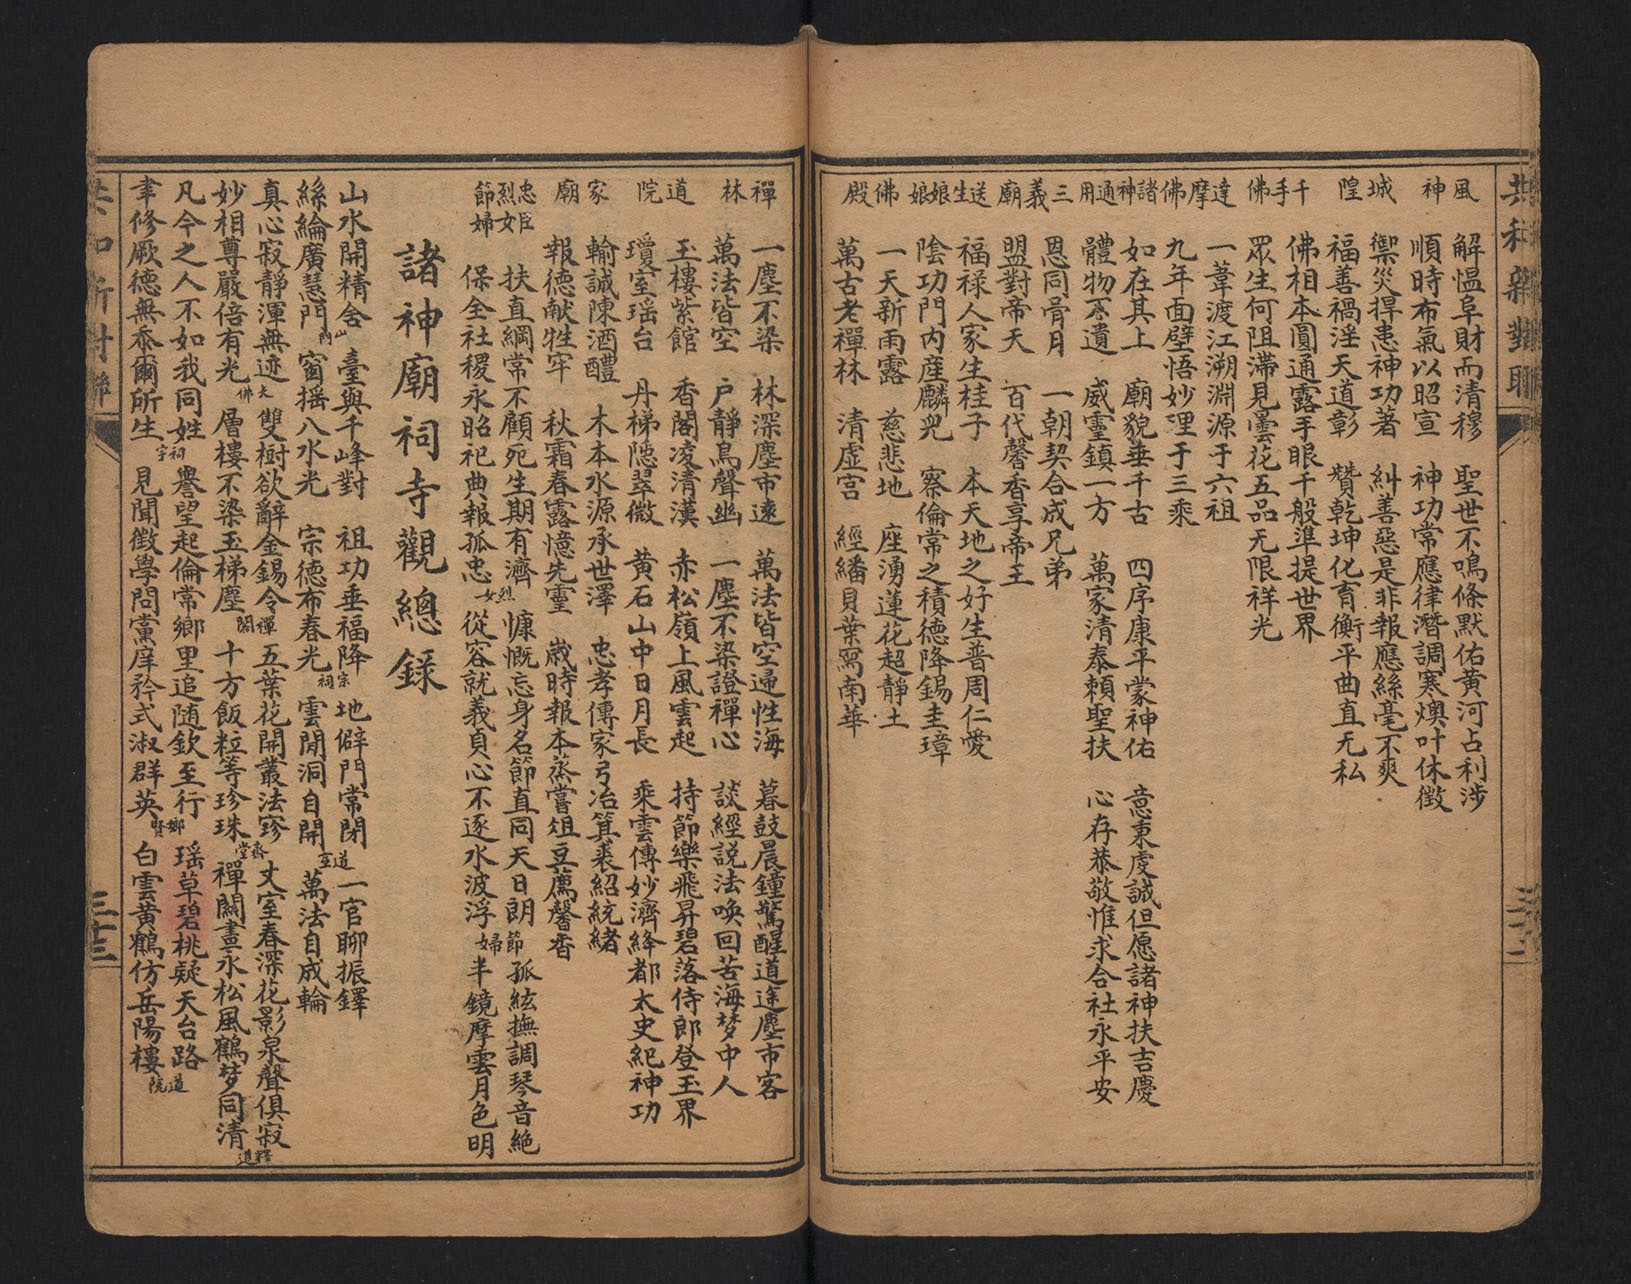 共和新對聯
風神
解愠阜財而清穆 聖世不鳴條默佑黄河占利涉
順時布氣以昭宣 神功常應律潛調寒燠叶休徴
城隍
禦災捍患神功著 糾善惡是非報應絲毫不爽
福善禍淫天道彰 贊乾坤化育衡平曲直无私
千手佛
佛相本圓通露手眼千般準提世界
眾生何阻滯見曇花五品无限祥光
達摩佛
一葦渡江溯淵源于六祖
九年面壁悟妙理于三乘
諸神通用
如在其上 廟貌垂千古 四序康平蒙神佑 意秉虔誠但愿諸神扶吉慶
體物不遺 威靈鎮一方 萬家清泰賴聖扶 心存恭敬惟求合社永平安
三義廟
恩同骨月 一朝契合成兄弟
盟對帝天 百代馨香享帝王
送生娘娘
福禄人家生桂子 本天地之好生普周仁愛
陰功門内産麟兒 察倫常之積德降錫圭璋
佛殿
一天新雨露 慈悲地 座湧蓮花超靜土
萬古老禪林 清虚宫 經繙貝葉寫南華
禪林
一塵不染 林深塵市遠 萬法皆空通性海 暮鼓晨鐘驚醒道途塵市客
萬法皆空 户靜鳥聲幽 一塵不染證禪心 談經説法喚回苦海梦中人
道院
玉樓紫館 香閣凌清漢 赤松嶺上風雲起 持節樂飛昇碧落侍郎登玉界
瓊室瑶台 丹梯隠翠微 黄石山中日月長 乘雲傳妙濟絳都太史紀神功
家廟
輸誠陳酒醴 木本水源承世澤 忠孝傳家弓冶箕裘紹統緒
報德献牲牢 秋霜春露憶先靈 歳時報本蒸嘗俎豆薦馨香
忠臣烈女節婦
扶直綱常不顧死生期有濟 慷慨忘身名節直同天日朗 節 孤絃撫調琴音絶
保全社稷永昭祀典報孤忠 烈女 從容就義貞心不逐水波浮 婦 半鏡摩雲月色明
諸神廟祠寺觀總録
山水開精舎 臺與千峰對 祖功垂福降 宗 地僻門常閉 一官聊振鐸
絲綸廣慧門 山門 窗揺八水光 宗德布春光 祠 雲閒洞自開 道室 萬法自成輪
真心寂靜渾無迹 雙樹欲辭金錫令 五葉花開叢法寳 丈室春深花影泉聲俱寂
妙相尊嚴倍有光 大佛 層樓不染玉梯塵 禪關 十方飯粒等珍珠 齋堂 禪關晝永松風鶴梦同清 釋道
凡今之人不如我同姓 譽望起倫常鄉里追随欽至行 瑶草碧桃疑天台路
聿修厥德無忝爾所生 祠字 見聞徴學問黨庠矜式淑群英 鄉賢 白雲黄鶴仿岳陽樓 道院
三十三